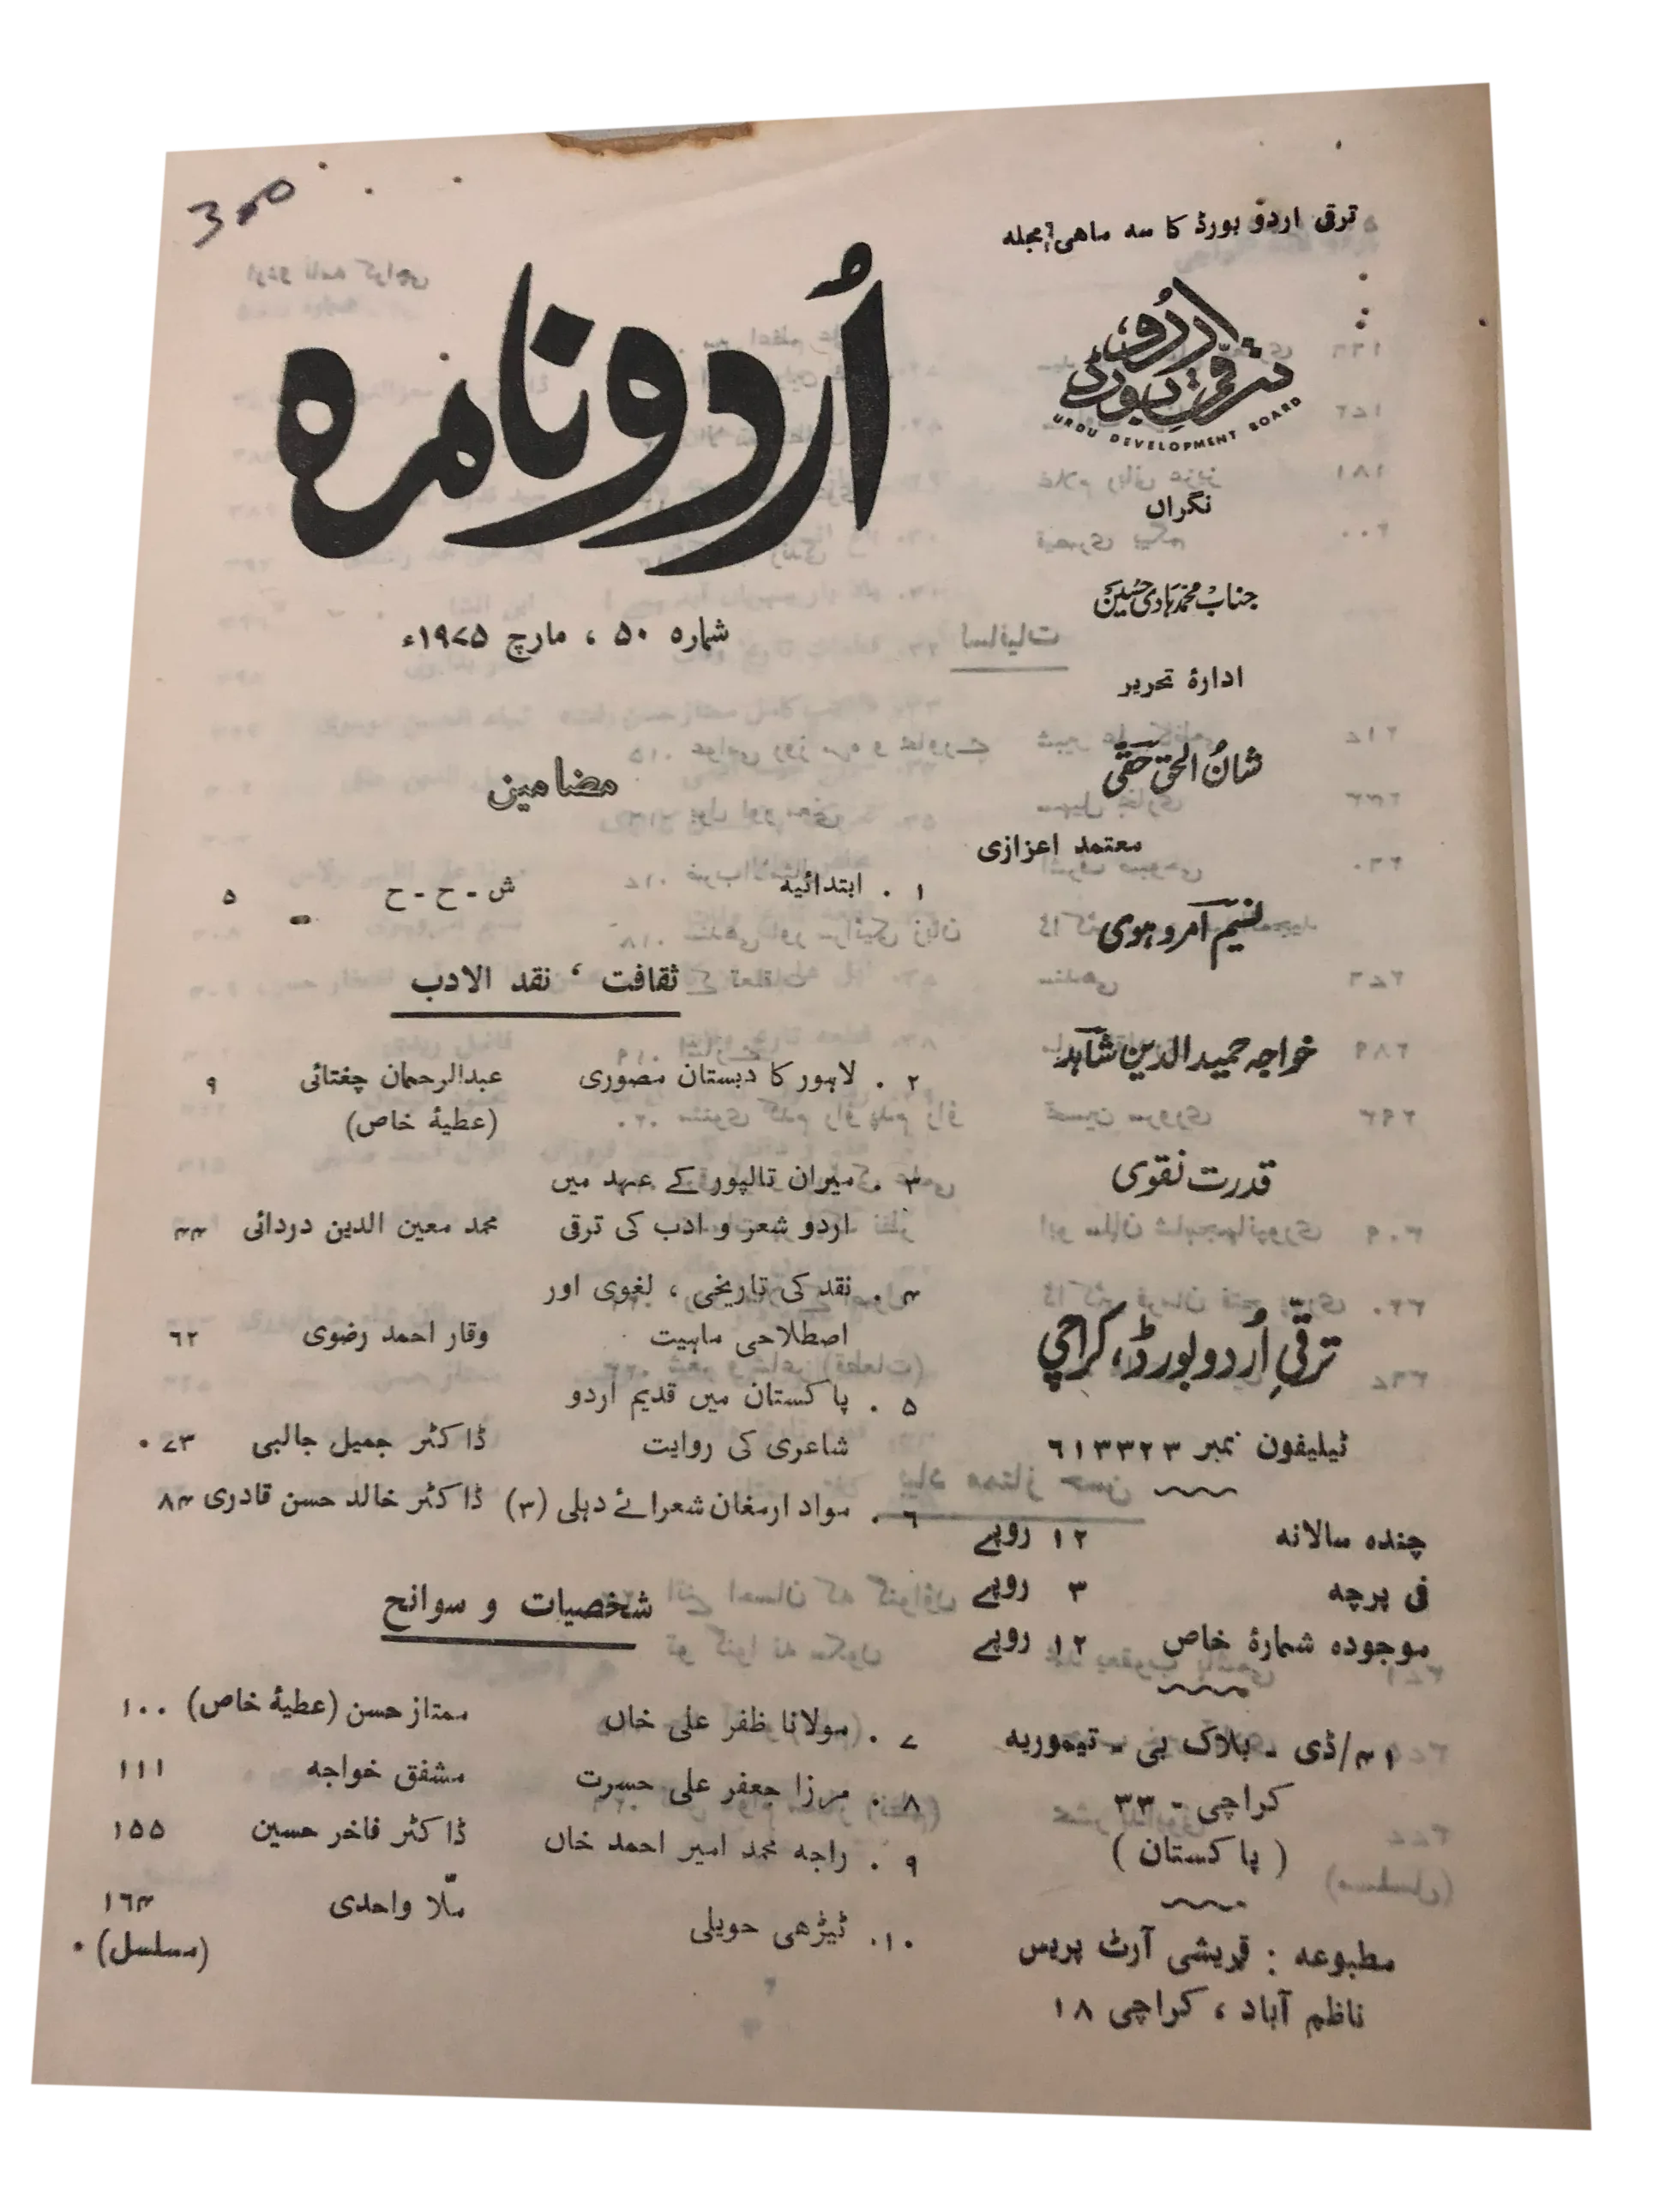 ترقی اردو بورڈ کا سہ ماہی مجلہ
ترقی اردو بورڈ
URDU DEVELOPMENT BOARD
نگراں
جناب محمد ہادی حسین
ادارۂ تحریر
شان الحق حقی
معتمد اعزازی
نسیم امروہوی
خواجہ حمید الدین شاہد
قدرت نقوی
ترقیِ اُردو بورڈ، کراچی
ٹیلیفون نمبر ۶۱۳۳۲۳
چندہ سالانہ ۱۲ روپے
فی پرچہ ۳ روپے
موجودہ شمارۂ خاص ۱۲ روپے
۴۱/ڈی ۔ بلاک بی ۔ تیموریہ
کراچی - ۳۳
( پاکستان )
مطبوعہ : قریشی آرٹ پریس
ناظم آباد ، کراچی ۱۸
اُردو نامہ
شمارہ ۵۰ ، مارچ ۱۹۷۵ء
مضامین
۱ . ابتدائیہ ش - ح - ح ۵
ثقافت ، نقد الادب
۲ . لاہور کا دبستان مصوری عبدالرحمان چغتائی ۹
(عطیۂ خاص)
۳ . میران تالپور کے عہد میں
اردو شعر و ادب کی ترقی محمد معین الدین دردائی ۴۴
۴ . نقد کی تاریخی ، لغوی اور
اصطلاحی ماہیت وقار احمد رضوی ۶۲
۵ . پاکستان میں قدیم اردو
شاعری کی روایت ڈاکٹر جمیل جالبی ۷۳
۶ . سواد ارمغان شعرائے دہلی (۳) ڈاکٹر خالد حسن قادری ۸۴
شخصیات و سوانح
۷ . مولانا ظفر علی خاں ممتاز حسن (عطیۂ خاص) ۱۰۰
۸ . مرزا جعفر علی حسرت مشفق خواجہ ۱۱۱
۹ . راجہ محمد امیر احمد خاں ڈاکٹر فاخر حسین ۱۵۵
۱۰. ٹیڑھی حویلی ملّا واحدی ۱۶۴
(مسلسل)